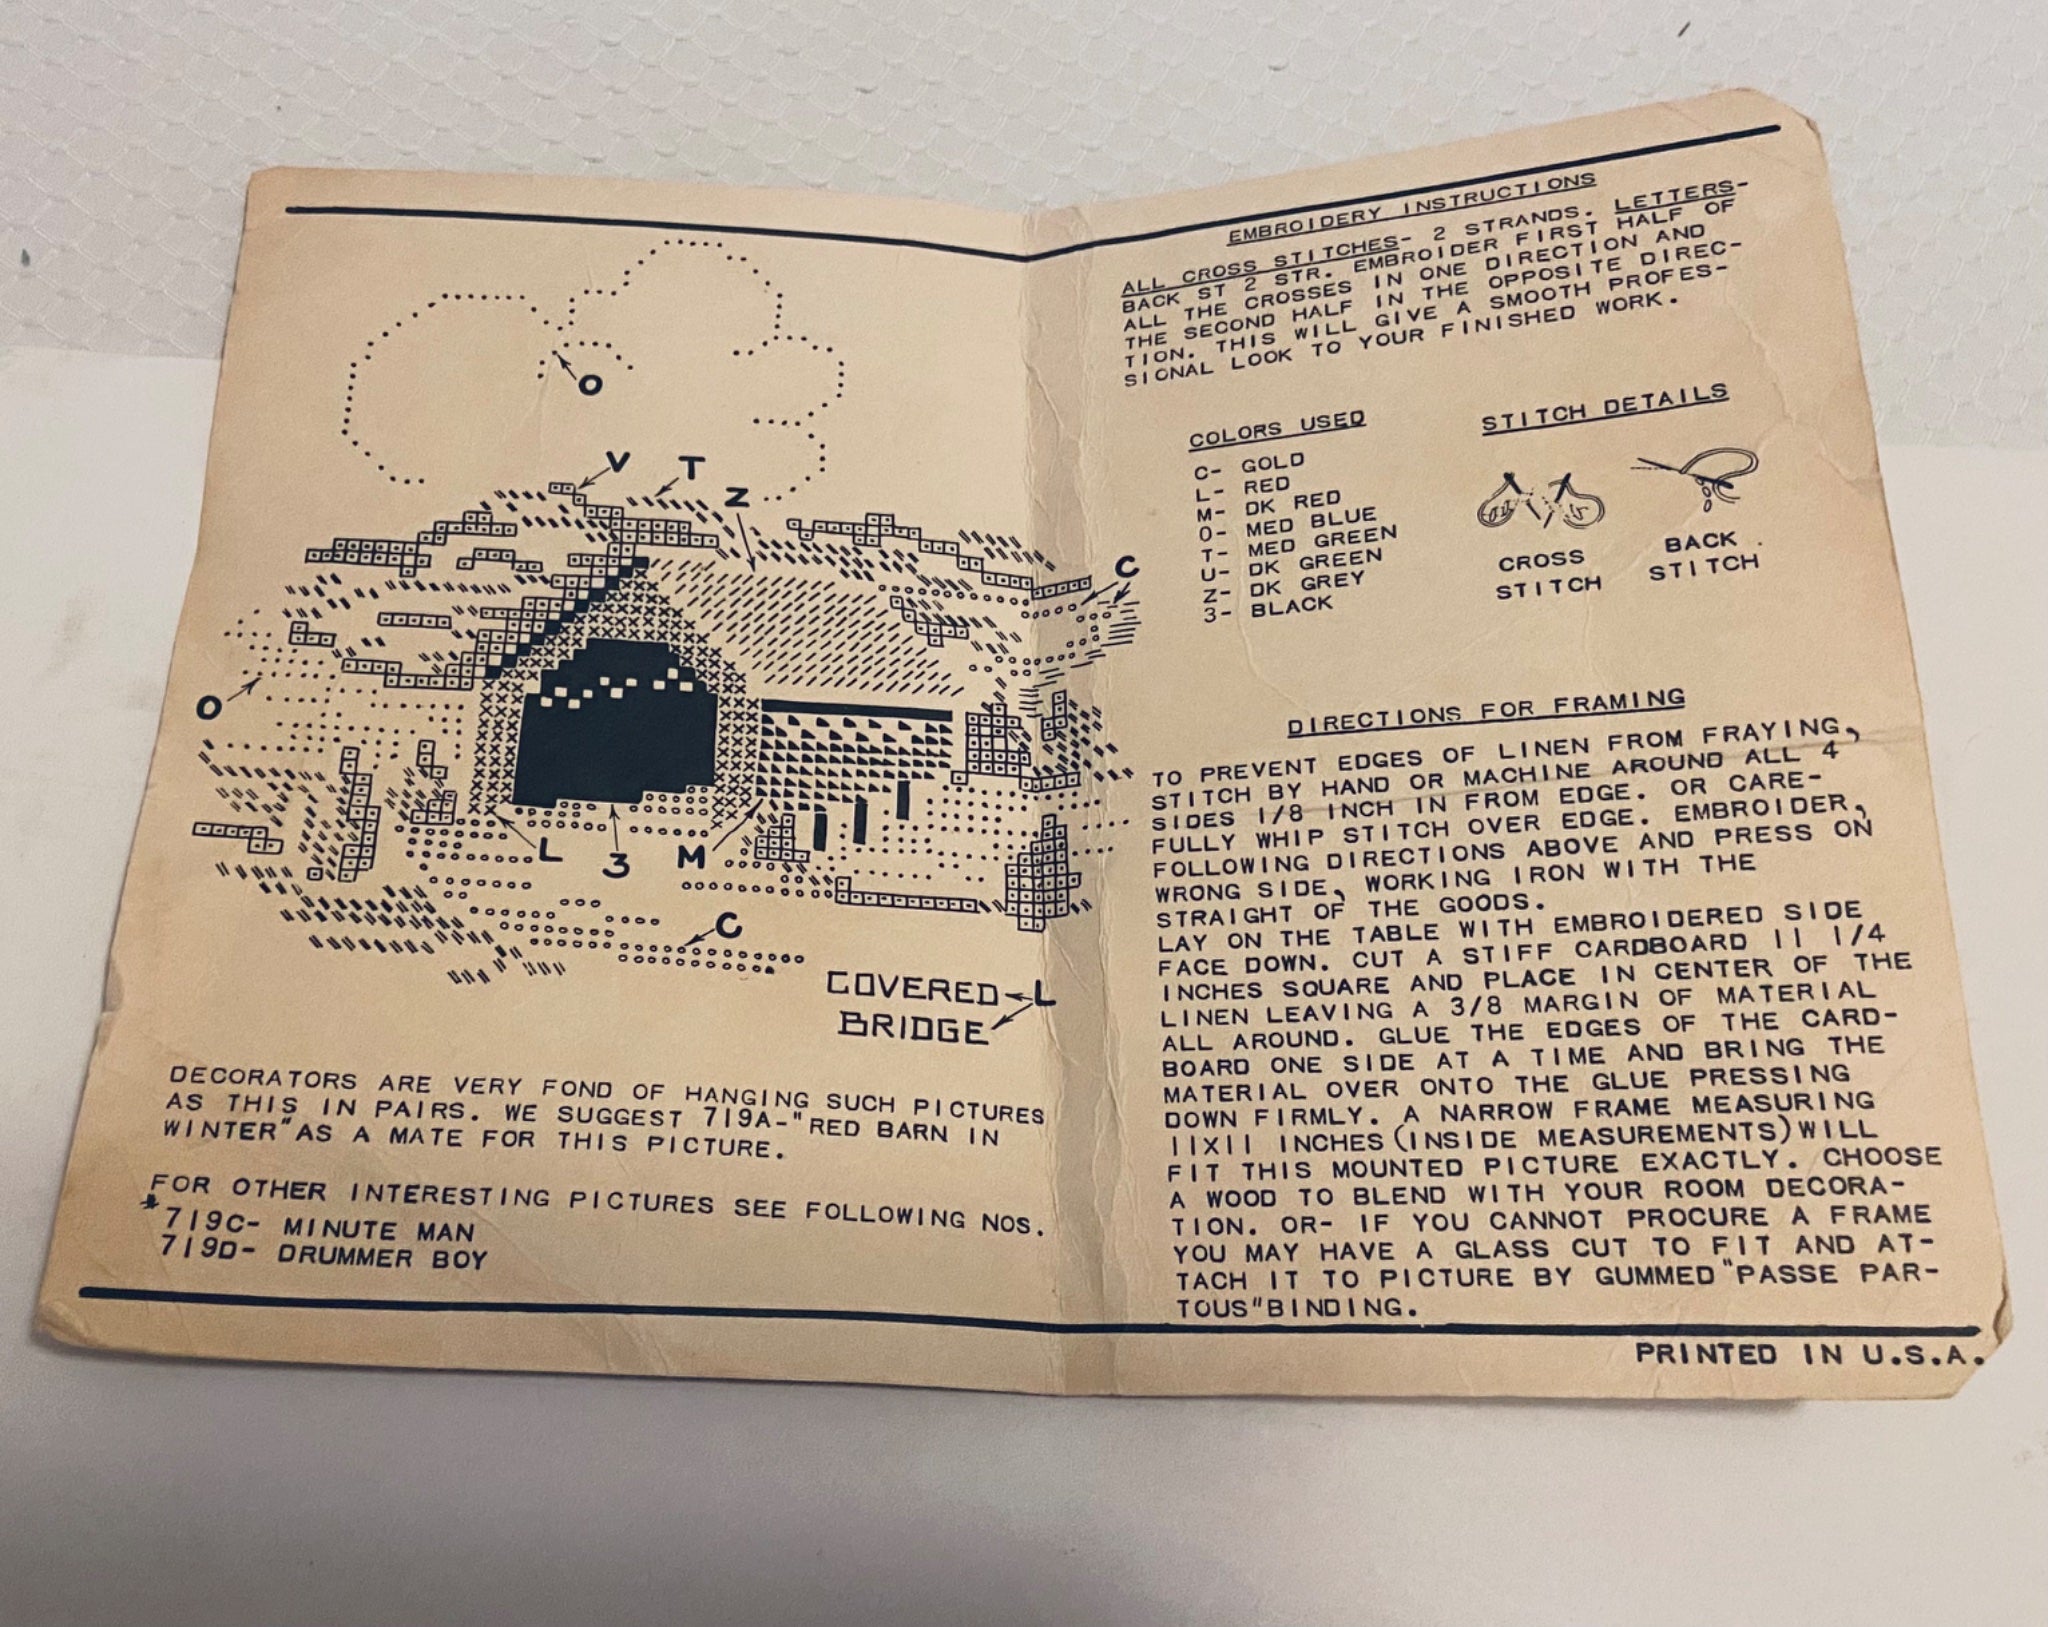 O
V
T
Z
C
O
L
3
M
C
COVERED L
BRIDGE
DECORATORS ARE VERY FOND OF HANGING SUCH PICTURES
AS THIS IN PAIRS. WE SUGGEST 719A-"RED BARN IN
WINTER" AS A MATE FOR THIS PICTURE.
FOR OTHER INTERESTING PICTURES SEE FOLLOWING NOS.
719C- MINUTE MAN
719D- DRUMMER BOY
EMBROIDERY INSTRUCTIONS
ALL CROSS STITCHES- 2 STRANDS. LETTERS-
BACK ST 2 STR. EMBROIDER FIRST HALF OF
ALL THE CROSSES IN ONE DIRECTION AND
THE SECOND HALF IN THE OPPOSITE DIREC-
TION. THIS WILL GIVE A SMOOTH PROFES-
SIONAL LOOK TO YOUR FINISHED WORK.
COLORS USED
C- GOLD
L- RED
M- DK RED
O- MED BLUE
T- MED GREEN
U- DK GREEN
Z- DK GREY
3- BLACK
STITCH DETAILS
CROSS
STITCH
BACK
STITCH
DIRECTIONS FOR FRAMING
TO PREVENT EDGES OF LINEN FROM FRAYING,
STITCH BY HAND OR MACHINE AROUND ALL 4
SIDES 1/8 INCH IN FROM EDGE. OR CARE-
FULLY WHIP STITCH OVER EDGE. EMBROIDER,
FOLLOWING DIRECTIONS ABOVE AND PRESS ON
WRONG SIDE, WORKING IRON WITH THE
STRAIGHT OF THE GOODS.
LAY ON THE TABLE WITH EMBROIDERED SIDE
FACE DOWN. CUT A STIFF CARDBOARD 11 1/4
INCHES SQUARE AND PLACE IN CENTER OF THE
LINEN LEAVING A 3/8 MARGIN OF MATERIAL
ALL AROUND. GLUE THE EDGES OF THE CARD-
BOARD ONE SIDE AT A TIME AND BRING THE
MATERIAL OVER ONTO THE GLUE PRESSING
DOWN FIRMLY. A NARROW FRAME MEASURING
11X11 INCHES (INSIDE MEASUREMENTS) WILL
FIT THIS MOUNTED PICTURE EXACTLY. CHOOSE
A WOOD TO BLEND WITH YOUR ROOM DECORA-
TION. OR- IF YOU CANNOT PROCURE A FRAME
YOU MAY HAVE A GLASS CUT TO FIT AND AT-
TACH IT TO PICTURE BY GUMMED "PASSE PAR-
TOUS" BINDING.
PRINTED IN U.S.A.